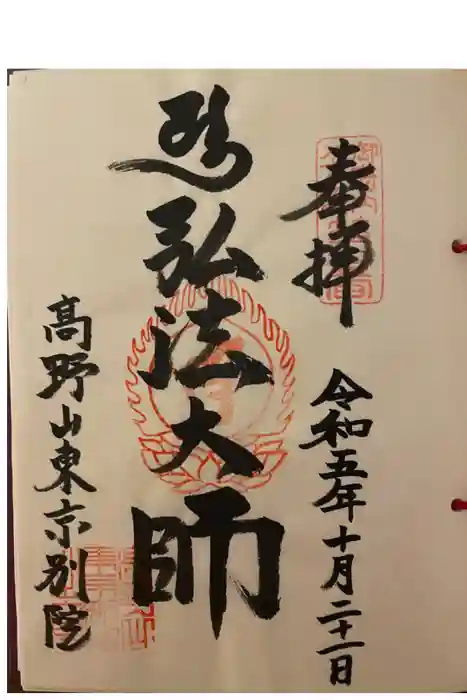 奉拝
令和五年十月二十一日
弘法大師
高野山東京別院